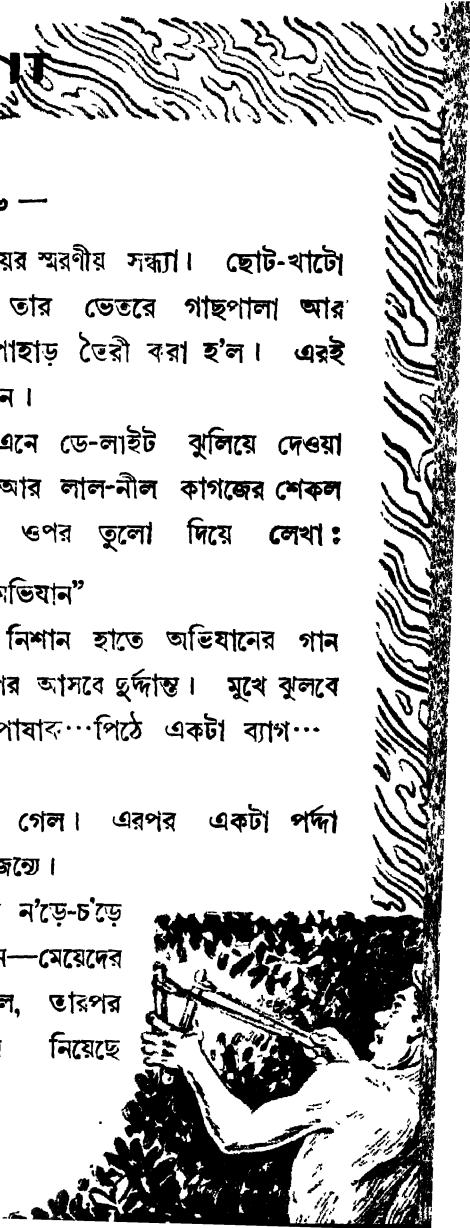 স্মরণীয় সন্ধ্যা। ছোট-খাটো
তার ভেতরে গাছপালা আর
পাহাড় তৈরী করা হ'ল। এরই
ন।
এনে ডে-লাইট ঝুলিয়ে দেওয়া
আর লাল-নীল কাগজের শেকল
ওপর তুলো দিয়ে লেখা:
অভিযান”
নিশান হাতে অভিযানের গান
আসবে দুর্দ্দান্ত। মুখে ঝুলবে
পোষাক···পিঠে একটা ব্যাগ···
গেল। এরপর একটা পর্দ্দা
জন্যে।
ন'ড়ে-চ'ড়ে
ন—মেয়েদের
ল, তারপর
নিয়েছে